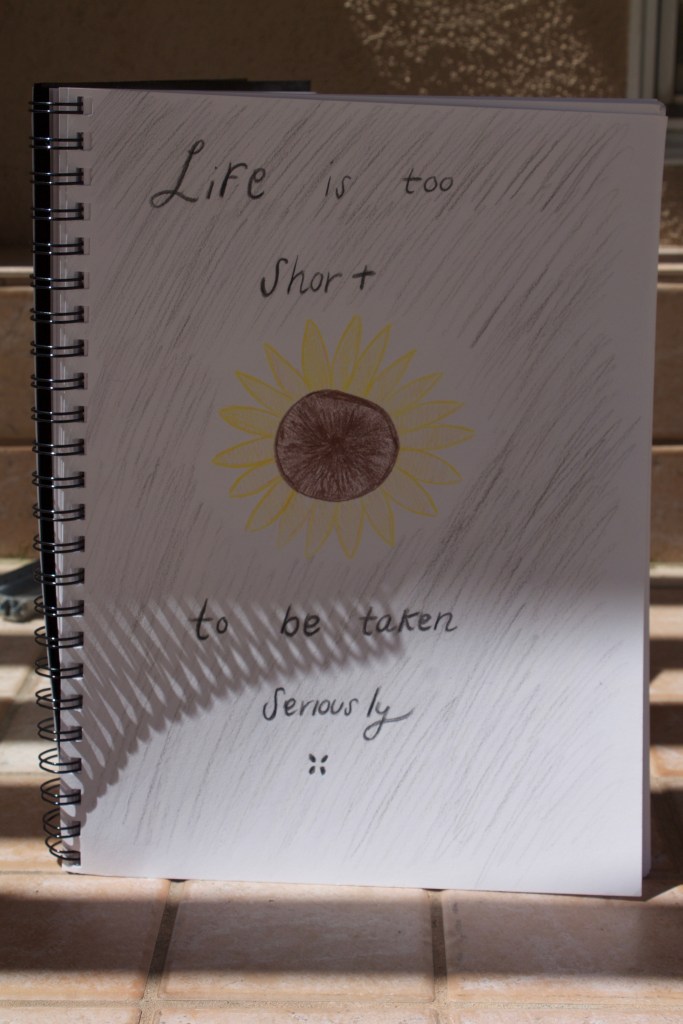 Life is too
Short
to be taken
Seriously